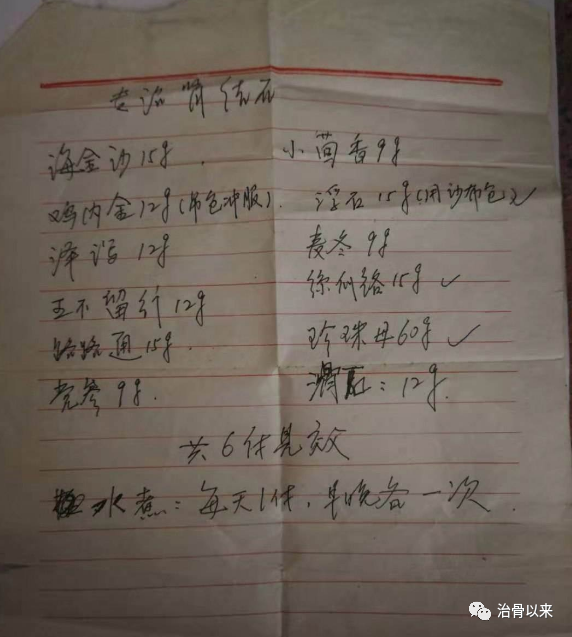 专治肾结石
海金沙15g. 小茴香9g
鸡内金12g(布包冲服). 浮石15g(用沙布包)✓
泽泻12g 麦冬9g
王不留行12g 丝瓜络15g ✓
路路通15g. 珍珠母60g ✓
党参9g. 12g.
共6付見效
水煮:每天1付,早晚各一次.
治骨以来